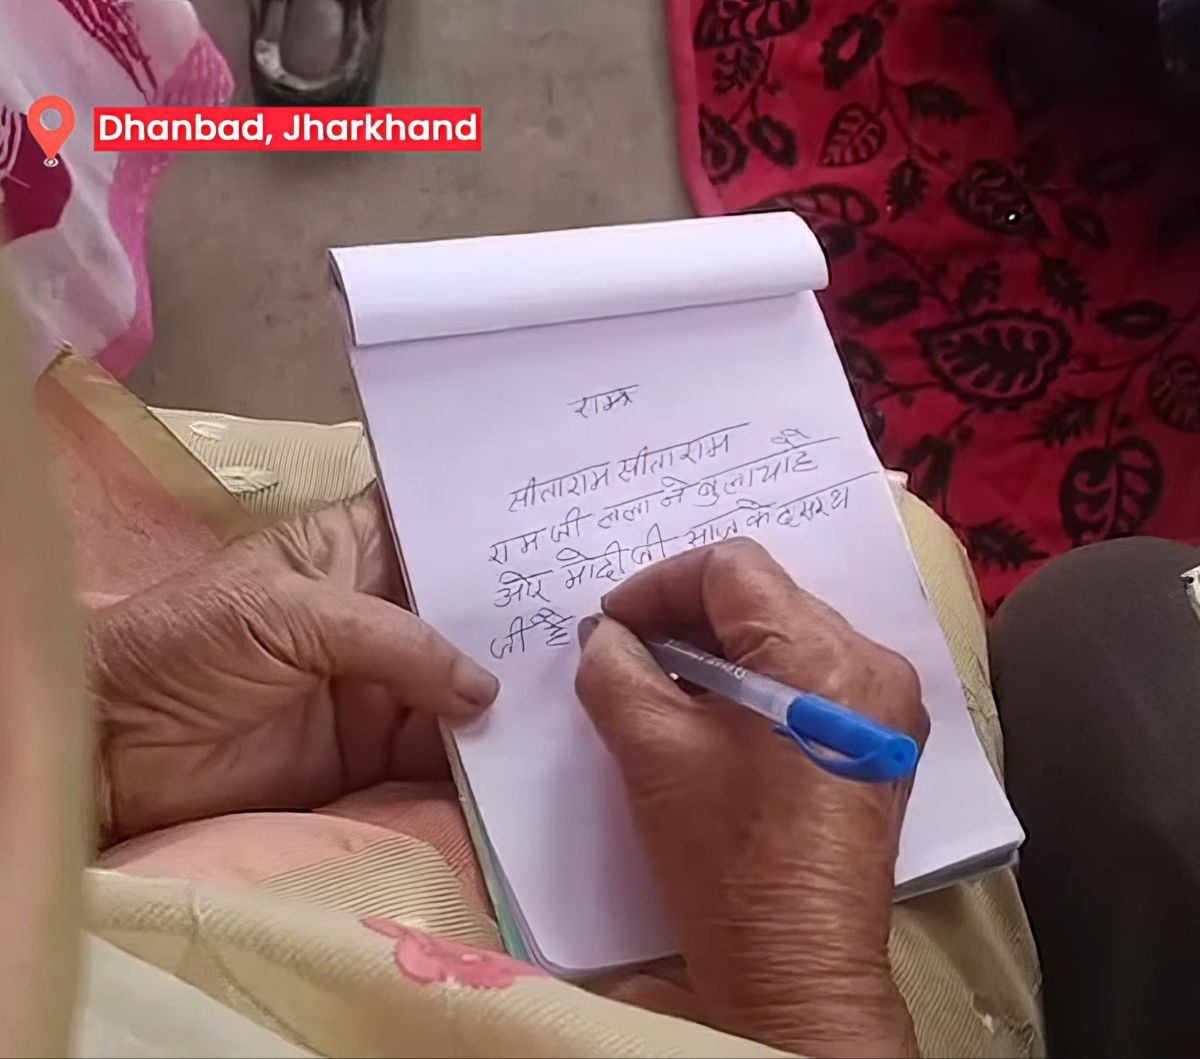 Dhanbad, Jharkhand
राम
सीताराम सीताराम
राम जी लला ने बुलाया है
ओर मोदी जी आज के दसरथ
जी है